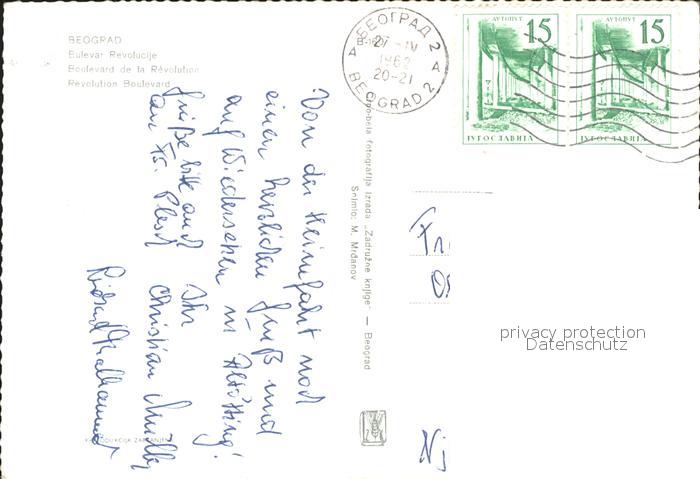 BEOGRAD
Bulevar Revolucije
Boulevard de la Révolution
Revolution Boulevard
БЕОГРАД 2
27 -IV
1962
20-21
BEOGRAD 2
A A
АУТОПУТ
15
ЈУГОСЛАВИЈА
АУТОПУТ
15
ЈУГОСЛАВИЈА
Von der Heimfahrt noch
einen herzlichen Gruß und
auf Wiedersehen in Altötting!
Grüße bitte auch Ihr
an Fr. Christian
Richard
Crno-bela fotografija izrada „Zadružne knjige" — Beograd
Snimio: M. Mrđanov
Fr
Nj
privacy protection
Datenschutz